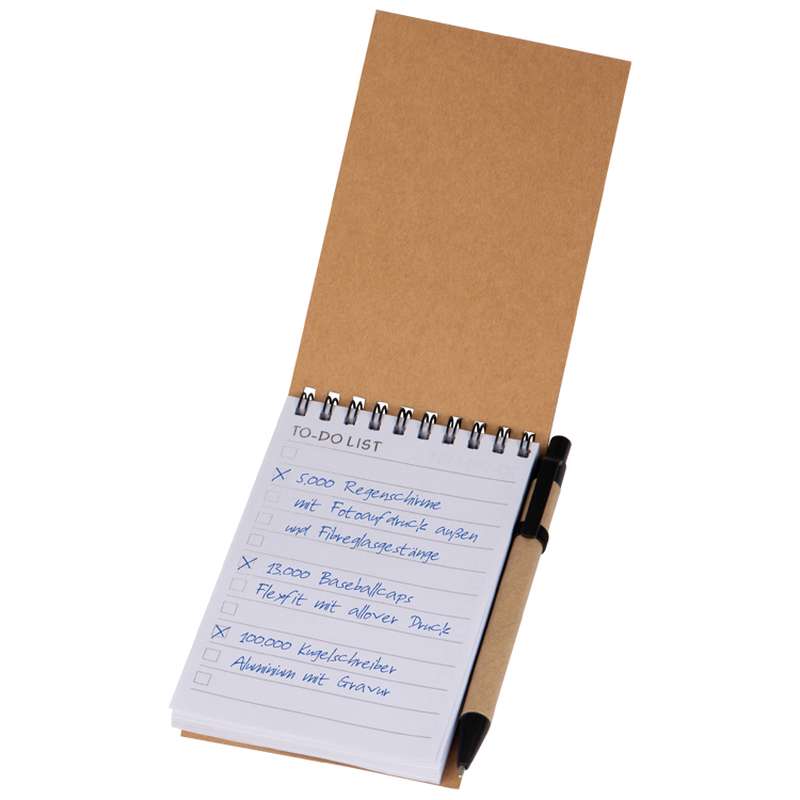 TO-DO LIST
5.000 Regenschirme
mit Fotoaufdruck außen
und Fibreglasgestänge
13.000 Baseballcaps
Flexfit mit allover Druck
100.000 Kugelschreiber
Aluminium mit Gravur